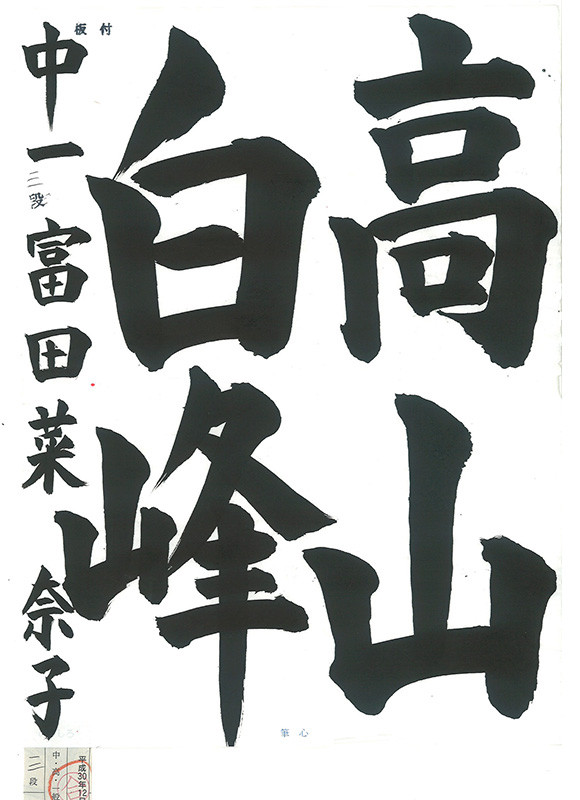 高山
白峰
付板
中一富田菜奈子
三段
心筆
平成30年12
中・高・一般
三段